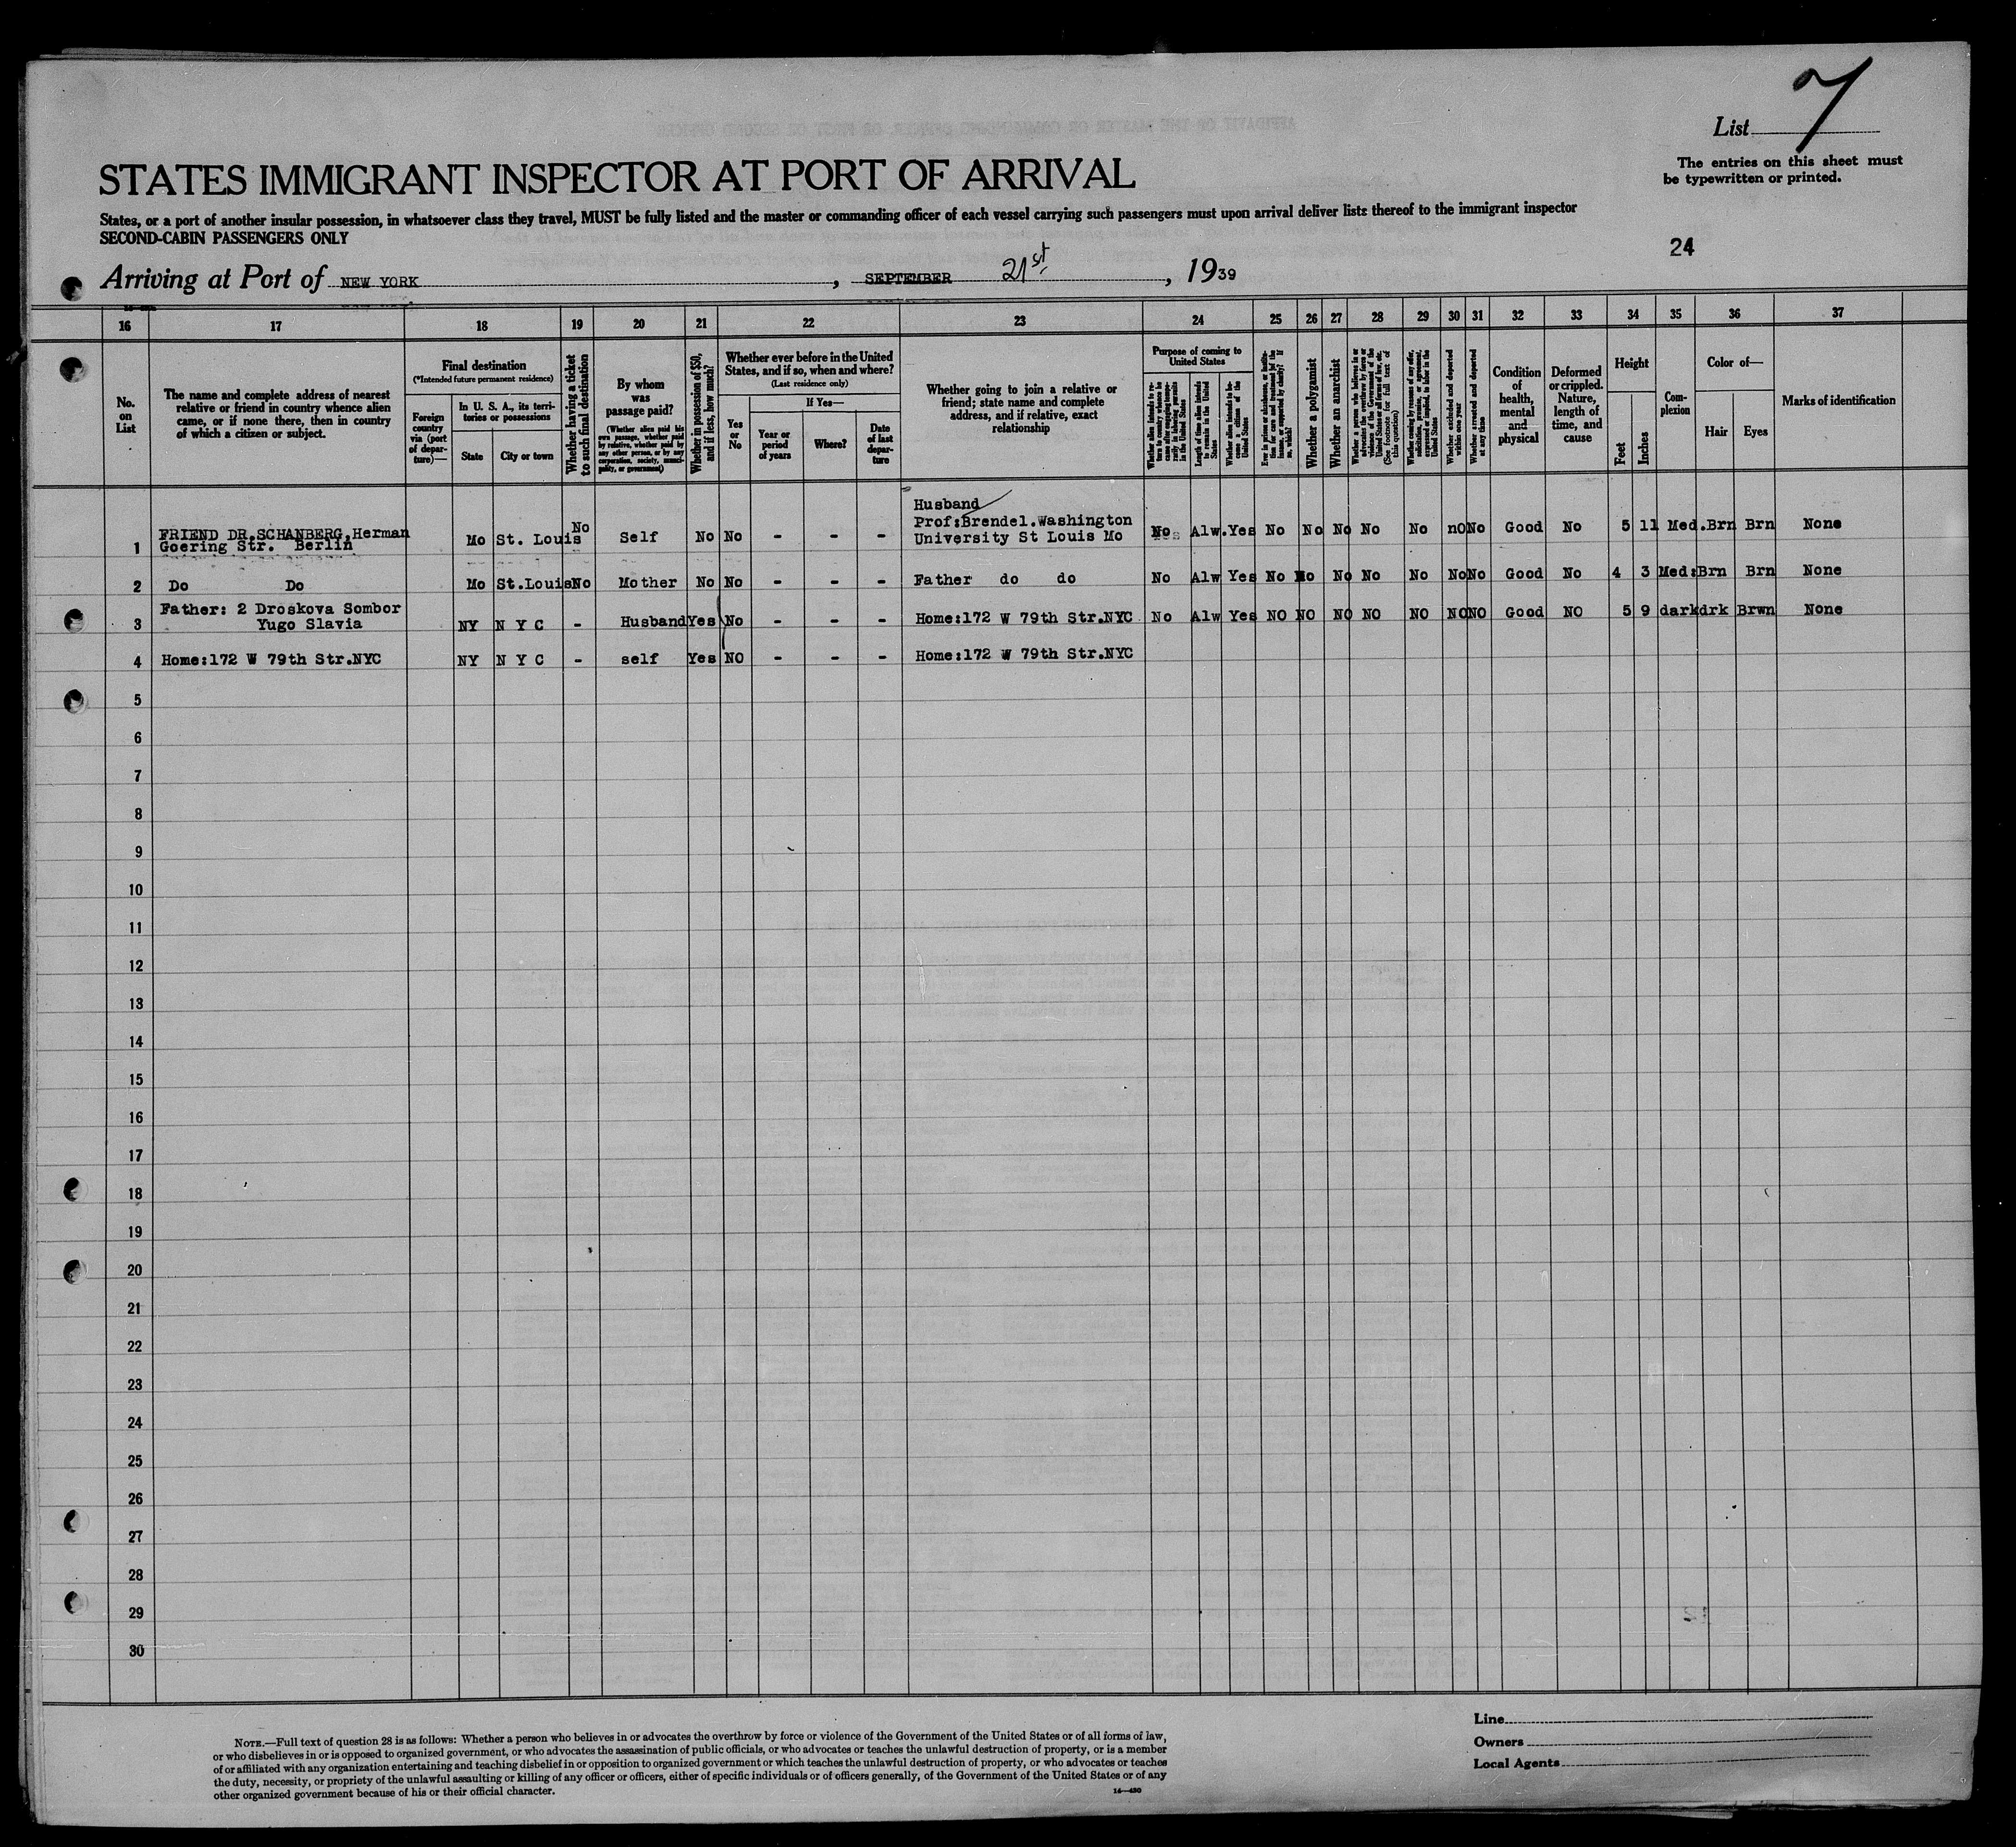 List 7
The entries on this sheet must
be typewritten or printed.
STATES IMMIGRANT INSPECTOR AT PORT OF ARRIVAL
States, or a port of another insular possession, in whatsoever class they travel, MUST be fully listed and the master or commanding officer of each vessel carrying such passengers must upon arrival deliver lists thereof to the immigrant inspector
SECOND-CABIN PASSENGERS ONLY
24
Arriving at Port of NEW YORK, SEPTEMBER 21st, 1939
16 17 18 19 20 21 22 23 24 25 26 27 28 29 30 31 32 33 34 35 36 37
No.
on
List
The name and complete address of nearest
relative or friend in country whence alien
came, or if none there, then in country
of which a citizen or subject.
Final destination
(*Intended future permanent residence)
Foreign
country
via (port
of depar-
ture)—
In U. S. A., its terri-
tories or possessions
State
City or town
Whether having a ticket
to such final destination
By whom
was
passage paid?
(Whether alien paid his
own passage, whether paid
by relative, whether paid by
any other person, or by any
corporation, society, munici-
pality, or government)
Whether in possession of $50,
and if less, how much?
Whether ever before in the United
States, and if so, when and where?
(Last residence only)
Yes
or
No
If Yes—
Year or
period
of years
Where?
Date
of last
depar-
ture
Whether going to join a relative or
friend; state name and complete
address, and if relative, exact
relationship
Purpose of coming to
United States
Whether alien intends to re-
turn to country whence he
came after engaging tempo-
rarily in laboring pursuits
in the United States
Length of time alien intends
to remain in the United
States
Whether alien intends to be-
come a citizen of the
United States
Ever in prison or almshouse, or institu-
tion for care and treatment of the
insane, or supported by charity? If
so, which?
Whether a polygamist
Whether an anarchist
Whether a person who believes in or
advocates the overthrow by force or
violence of the Government of the
United States or all forms of law, etc.
(See footnote for full text of
this question)
Whether coming by reason of any offer,
solicitation, promise, or agreement,
expressed or implied, to labor in the
United States
Whether excluded and deported
within one year
Whether arrested and deported
at any time
Condition
of
health,
mental
and
physical
Deformed
or crippled.
Nature,
length of
time, and
cause
Height
Feet
Inches
Com-
plexion
Color of—
Hair
Eyes
Marks of identification
Husband
1 FRIEND DR.SCHANBERG,Herman Mo St. Louis No Self No No - - - Prof:Brendel.Washington No Alw.Yes No No No No No nO No Good No 5 11 Med.Brn Brn None
Goering Str. Berlin University St Louis Mo
2 Do Do Mo St.Louis No Mother No No - - - Father do do No Alw Yes No No No No No No No Good No 4 3 Med:Brn Brn None
3 Father: 2 Droskova Sombor NY N Y C - Husband Yes No - - - Home:172 W 79th Str.NYC No Alw Yes NO NO NO NO NO NO NO Good NO 5 9 dark drk Brwn None
Yugo Slavia
4 Home:172 W 79th Str.NYC NY N Y C - self Yes NO - - - Home:172 W 79th Str.NYC
5
6
7
8
9
10
11
12
13
14
15
16
17
18
19
20
21
22
23
24
25
26
27
28
29
30
NOTE.—Full text of question 28 is as follows: Whether a person who believes in or advocates the overthrow by force or violence of the Government of the United States or of all forms of law,
or who disbelieves in or is opposed to organized government, or who advocates the assassination of public officials, or who advocates or teaches the unlawful destruction of property, or is a member
of or affiliated with any organization entertaining and teaching disbelief in or opposition to organized government or which teaches the unlawful destruction of property, or who advocates or teaches
the duty, necessity, or propriety of the unlawful assaulting or killing of any officer or officers, either of specific individuals or of officers generally, of the Government of the United States or of any
other organized government because of his or their official character.
14—430
Line
Owners
Local Agents